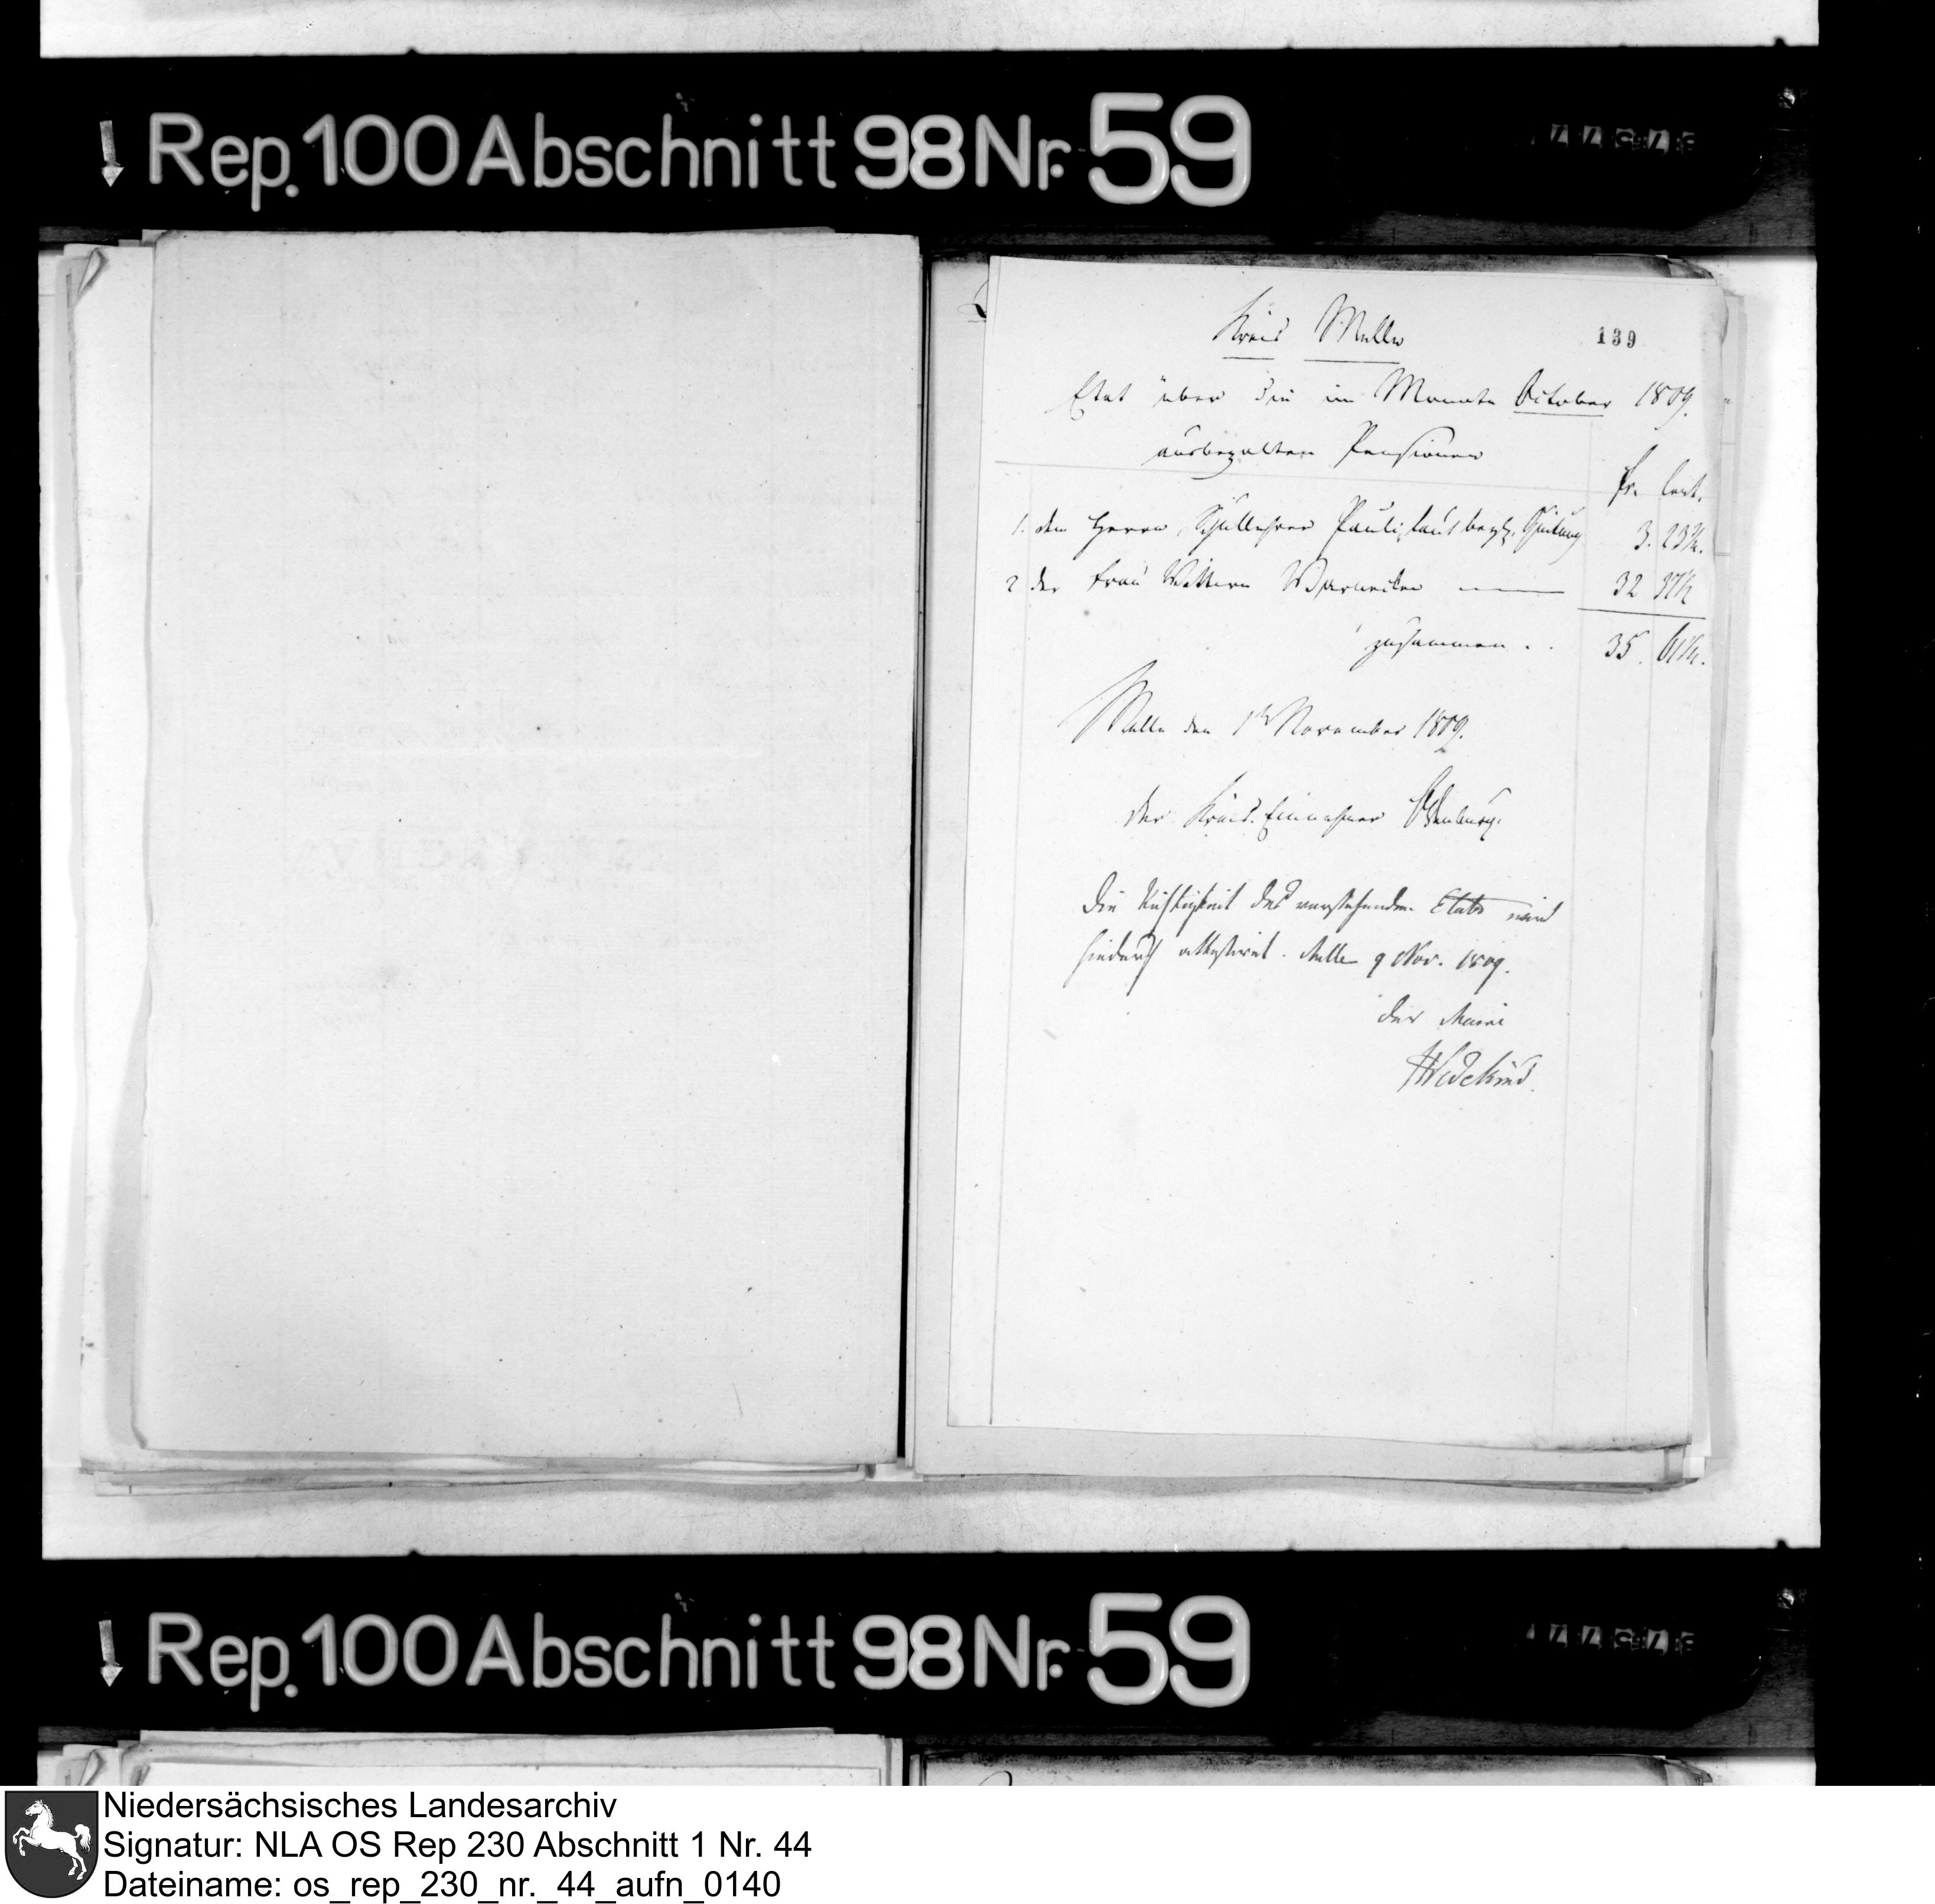 Rep. 100 Abschnitt 98 Nr. 59
139
Kreis Melle
Etat über die im Monate October 1809.
ausbezalten Pensionen
fr. Cent.
1. dem Herrn Schullehrer Pauli, laut beygl. Quitung 3. 23¾.
2 der Frau Wittwe 32 37½
zusammen . . 35. 61¼.
Melle den 1ten November 1809.
der Kreis-Einnehmer Oldenburg.
Die Richtigkeit des vorstehenden Etats wird
hiedurch attestirt. Melle 9 Nov. 1809.
Der Maire
Wedekind.
Rep. 100 Abschnitt 98 Nr. 59
Niedersächsisches Landesarchiv
Signatur: NLA OS Rep 230 Abschnitt 1 Nr. 44
Dateiname: os_rep_230_nr._44_aufn_0140